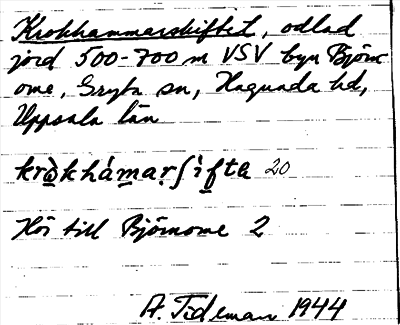 Krokhammarskiftet, odlad
jord 500-700 m VSV byn Björn
ome, Gryta sn, Hagunda hd,
Uppsala län
krɷ̀khámaṛʃìfte 20
Hör till Björnome 2
A. Tideman 1944